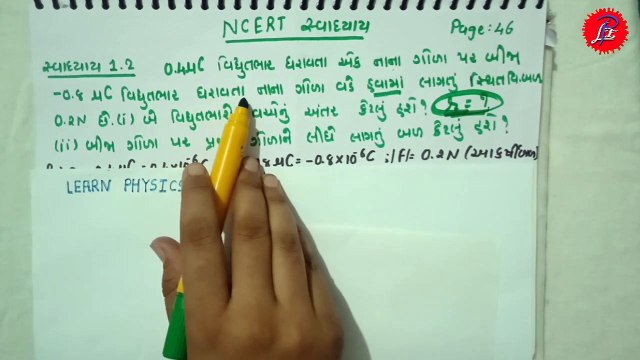 NCERT સ્વાધ્યાય
Page: 46
સ્વાધ્યાય 1.2 0.4μC વિદ્યુતભાર ધરાવતા એક નાના ગોળા પર બીજા
-0.8 μC વિદ્યુતભાર ધરાવતા નાના ગોળા વડે હવામાં લાગતું સ્થિતવિ.બળ
0.2N છે. (i) બે વિદ્યુતભારો વચ્ચેનું અંતર કેટલું હશે? r = ?
(ii) બીજા ગોળા પર ગોળાને લીધે લાગતું બળ કેટલું હશે?
μC = -0.8×10⁻⁶C ; |F|= 0.2N
LEARN PHYSICS